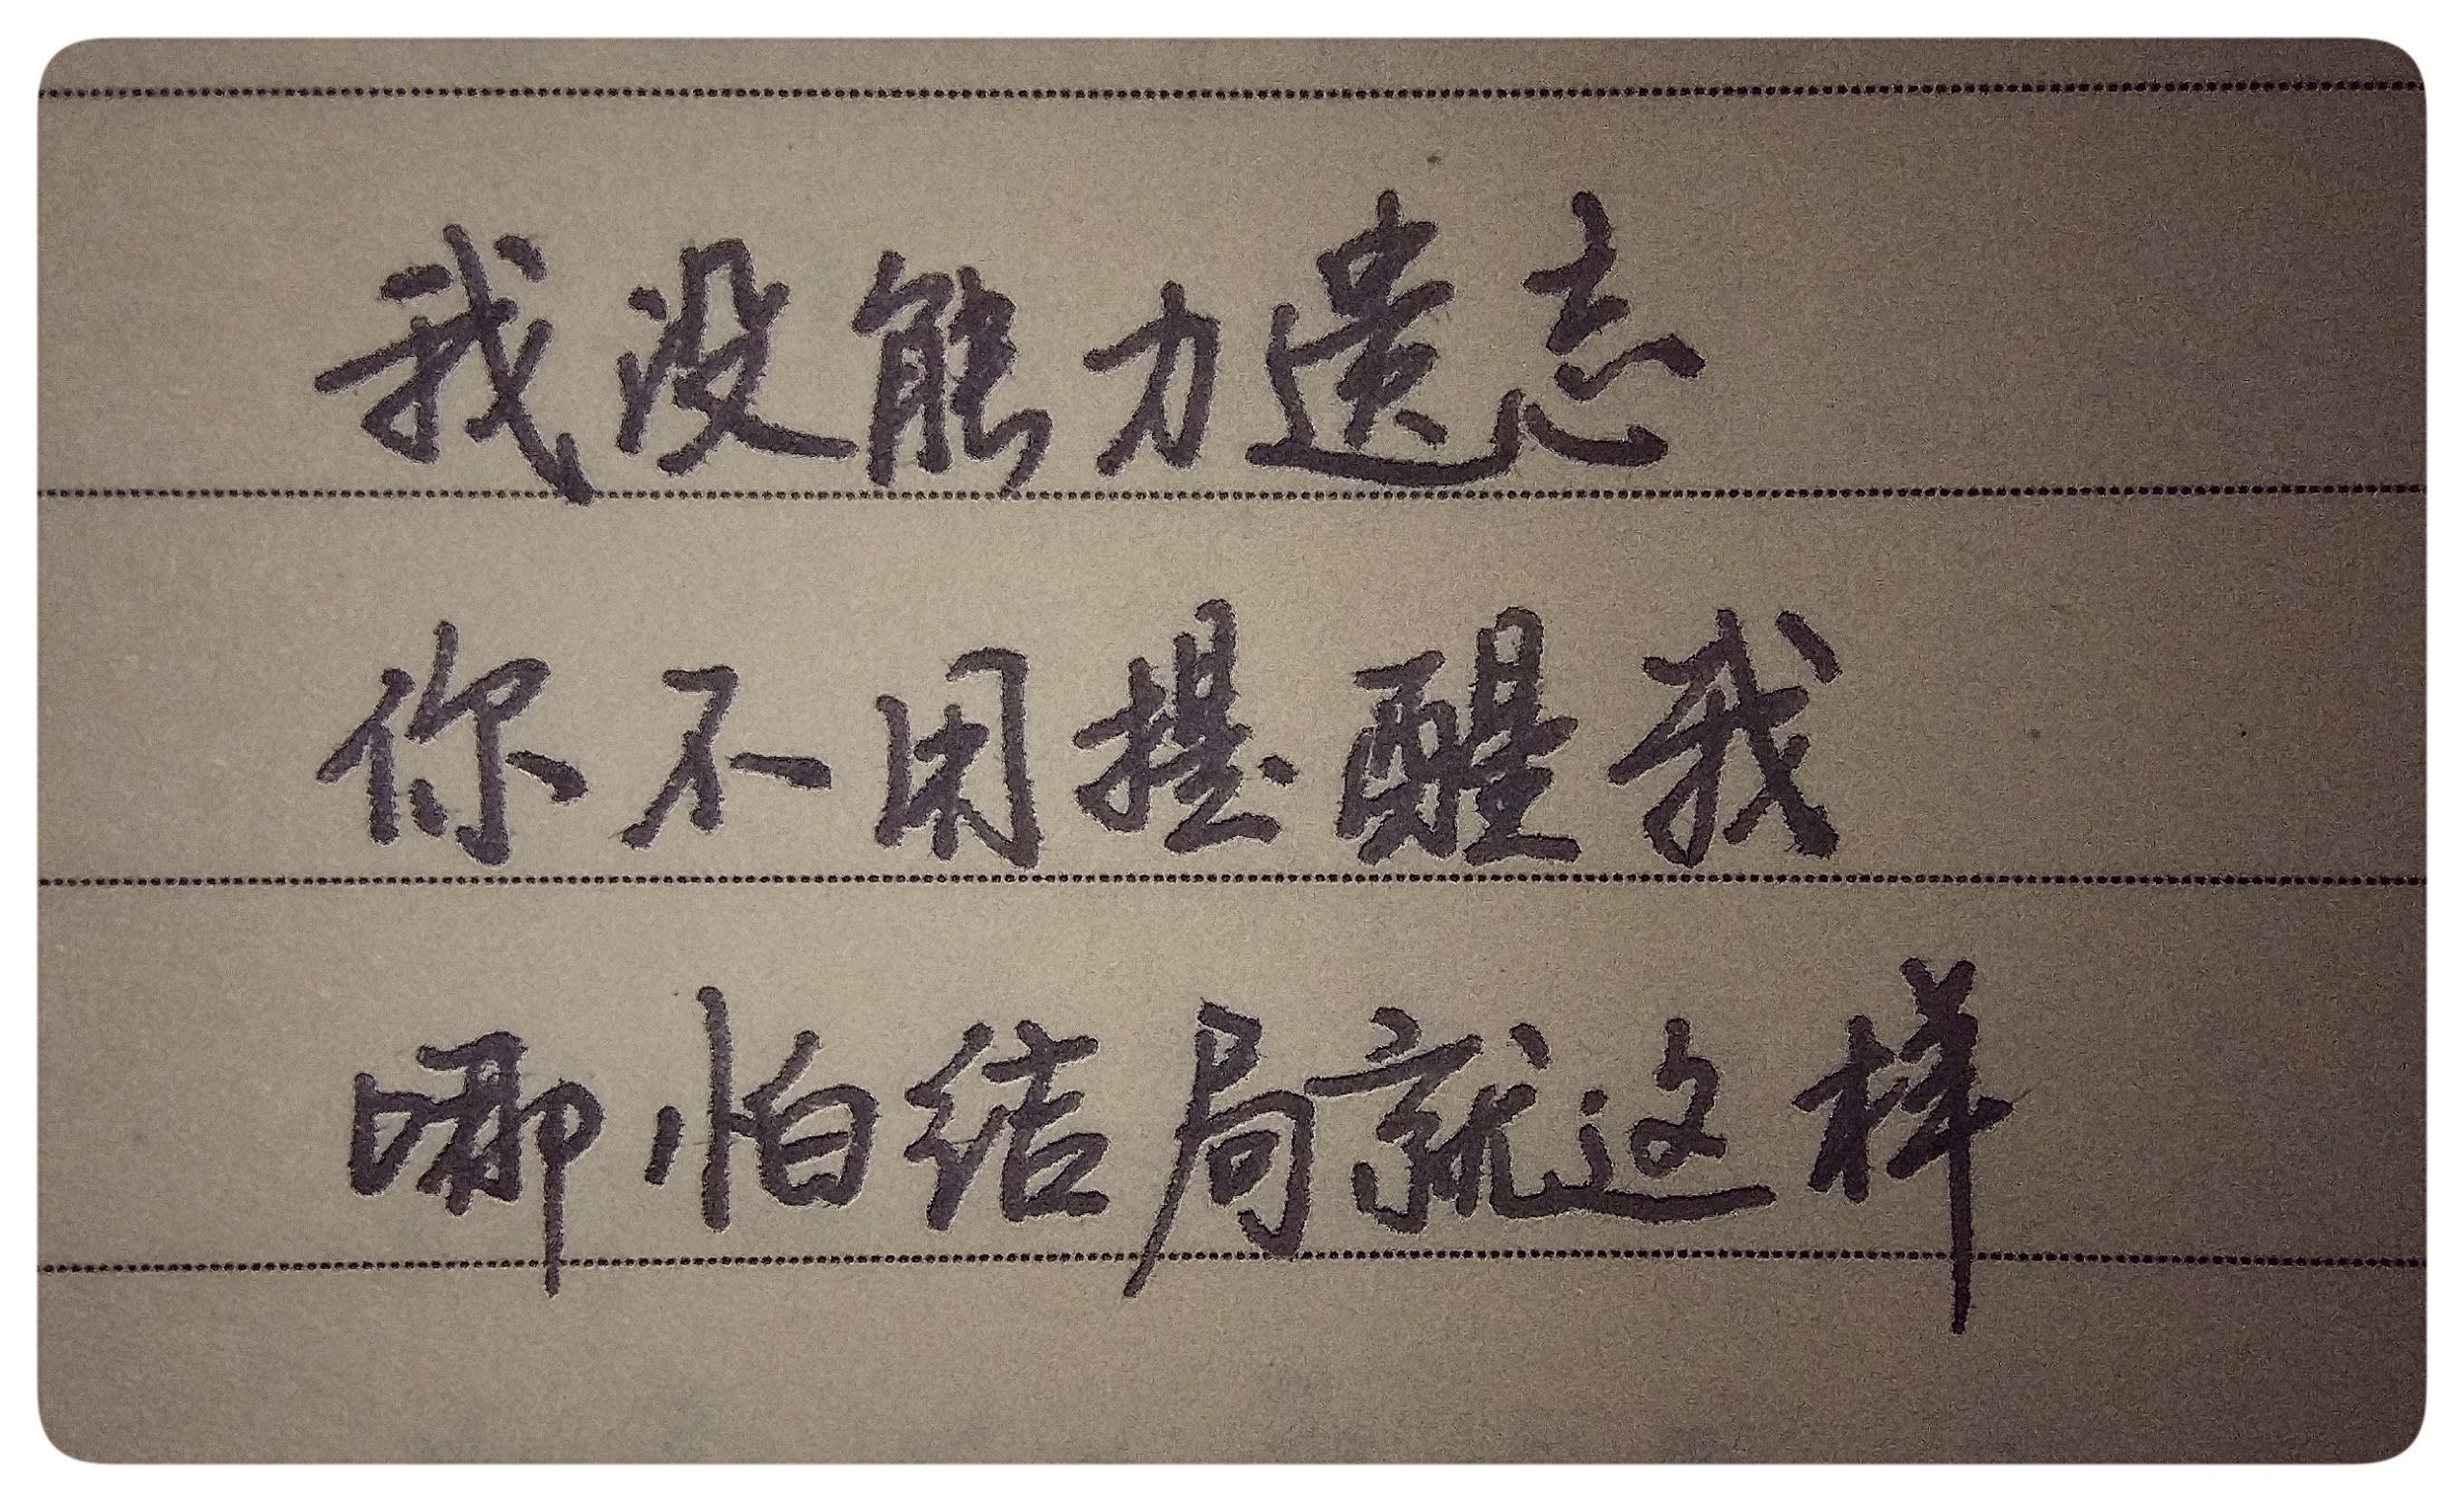 我没能力遗忘
你不用提醒我
哪怕结局就这样